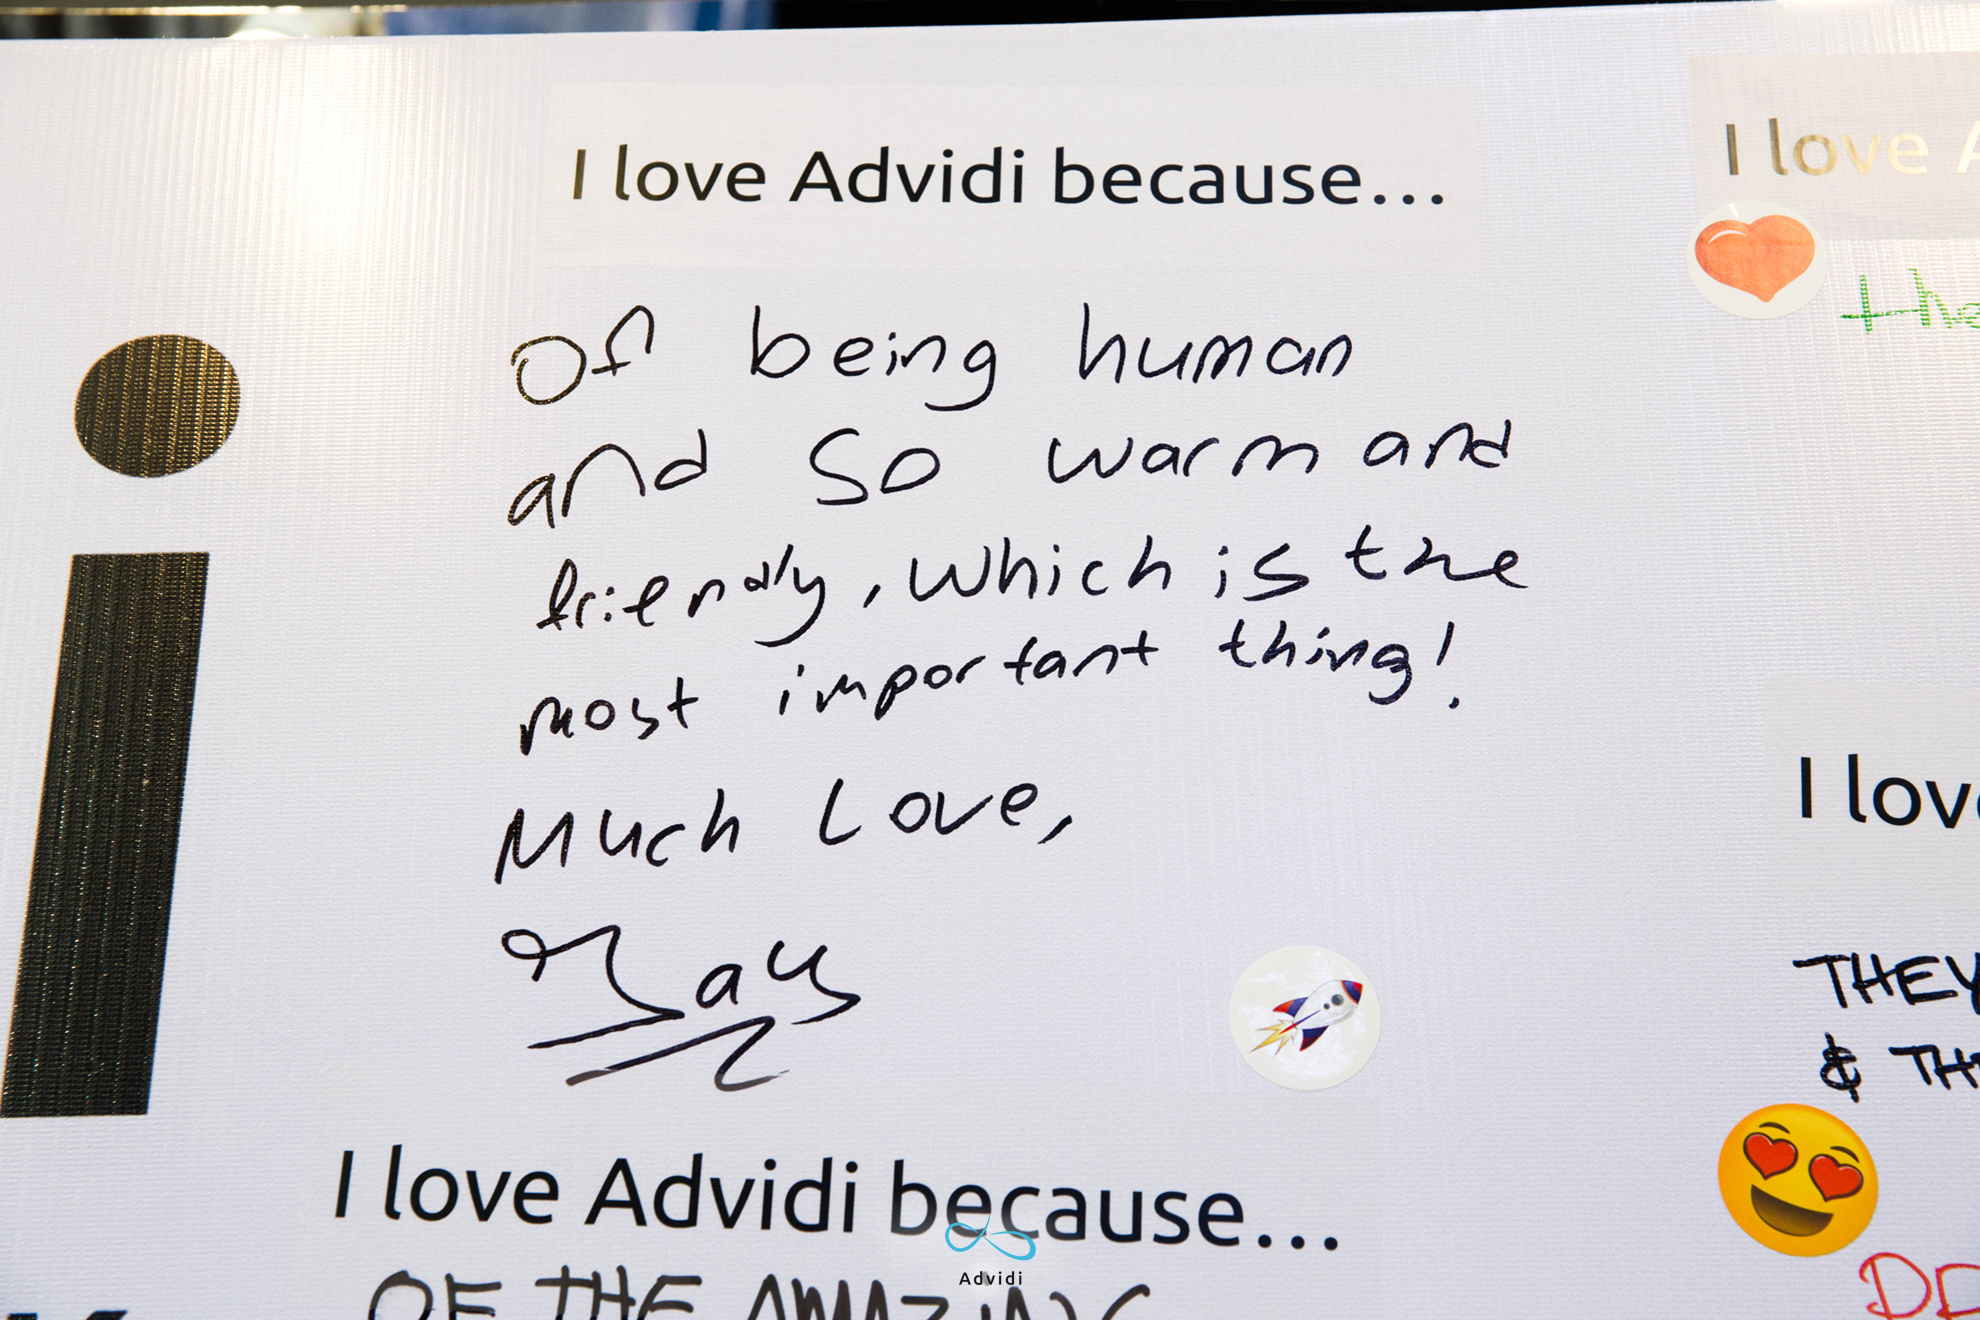 I love Advidi because...
Of being human
and so warm and
friendly, which is the
most important thing!
Much Love,
I love Advidi because...
OF THE AMAZING
I love
the
I love
THEY
& TH
Advidi